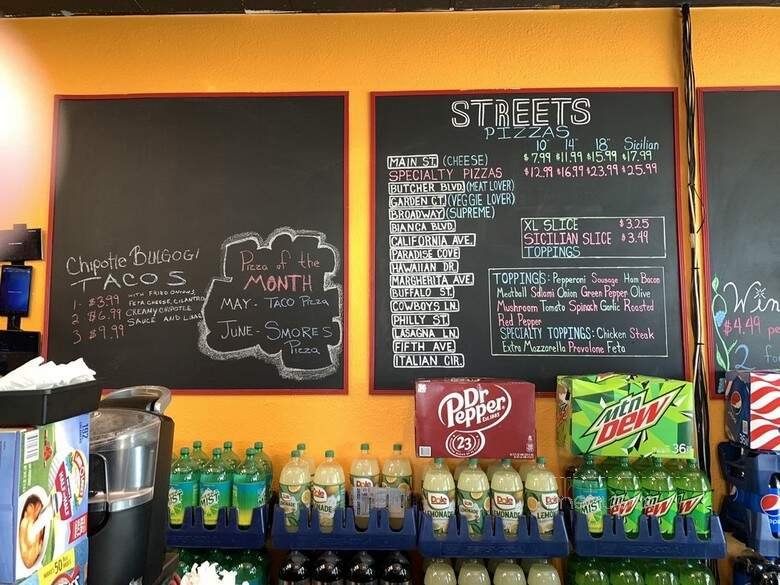 Chipotle BULGOGI
TACOS
1 - $3.99
2 $6.99
3 $9.99
WITH FRIED ONIONS
FETA CHEESE, CILANTRO
CREAMY CHIPOTLE
SAUCE AND LIME
Pizza of the
MONTH
MAY - TACO Pizza
JUNE - SMORES
Pizza
STREETS
PIZZAS
10" 14" 18" Sicilian
MAIN ST. (CHEESE) $7.99 $11.99 $15.99 $17.99
SPECIALTY PIZZAS $12.99 $16.99 $23.99 $25.99
BUTCHER BLVD. (MEAT LOVER)
GARDEN CT. (VEGGIE LOVER)
BROADWAY (SUPREME)
BIANCA BLVD.
CALIFORNIA AVE.
PARADISE COVE
HAWAIIAN DR.
MARGHERITA AVE.
BUFFALO ST.
COWBOYS LN.
PHILLY ST.
LASAGNA LN.
FIFTH AVE.
ITALIAN CIR.
XL SLICE $3.25
SICILIAN SLICE $3.49
TOPPINGS
TOPPINGS: Pepperoni Sausage Ham Bacon
Meatball Salami Onion Green Pepper Olive
Mushroom Tomato Spinach Garlic Roasted
Red Pepper
SPECIALTY TOPPINGS: Chicken Steak
Extra Mozzarella Provolone Feta
Win
$4.49
2
Dr Pepper
23
Mtn
DEW
36
pepsi
MIST
Dole
LEMONADE
Dole
LEMONADE
Dole
LEMONADE
MIST
50